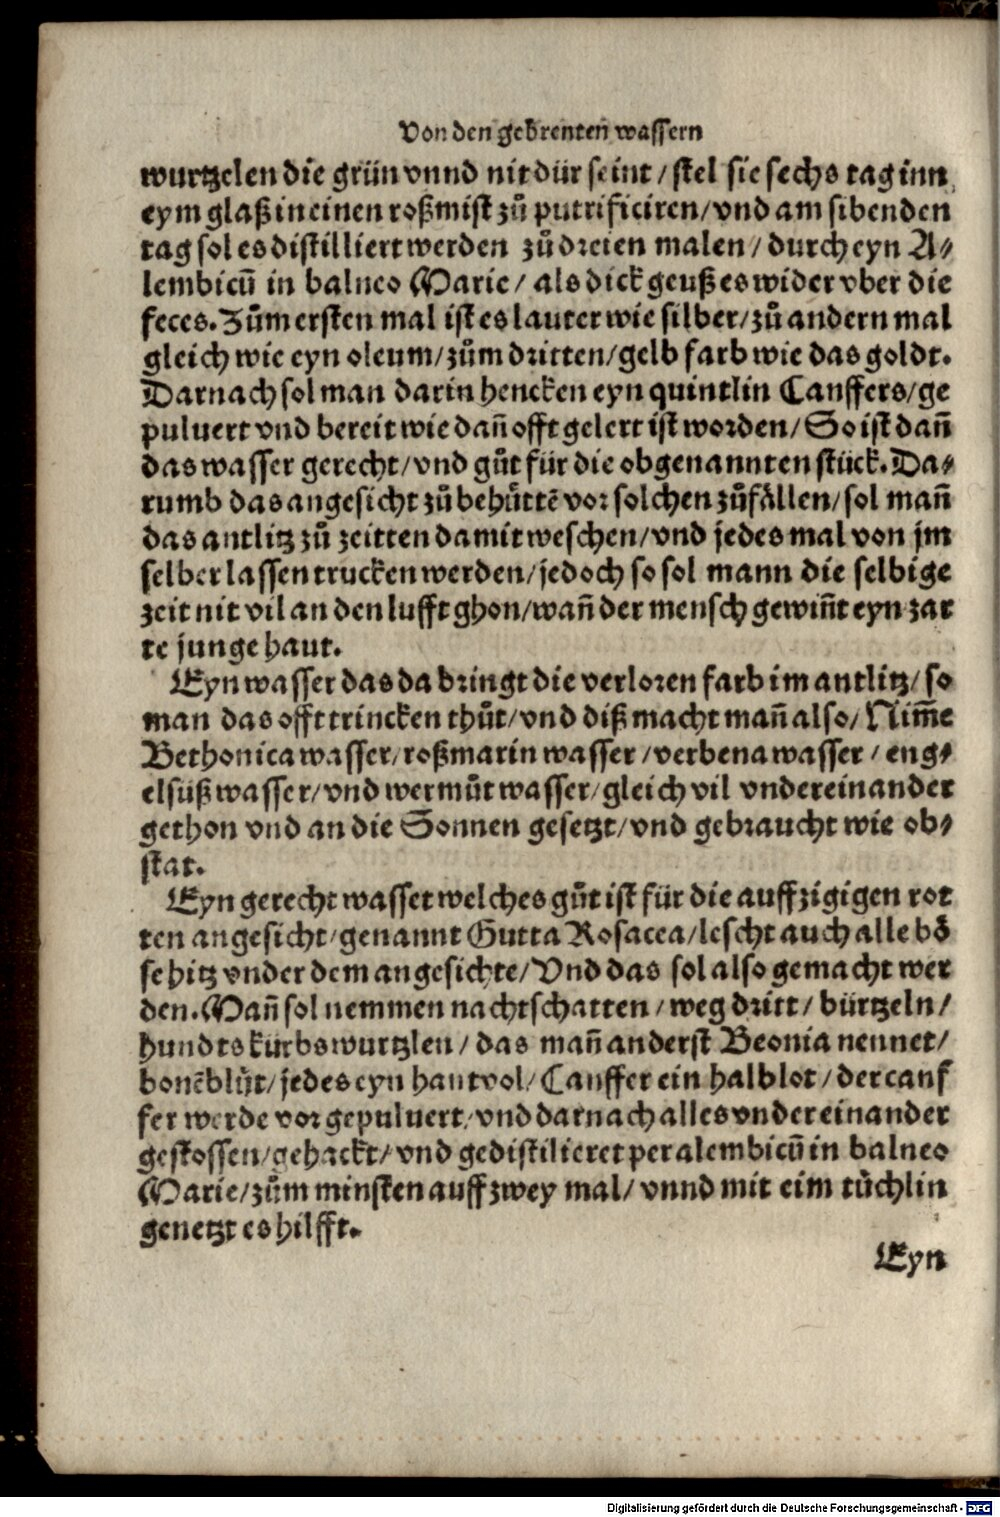 Von den gebrenten wassern
wurtzelen die grün vnnd nit dür seint / stel sie sechs tag inn
eym glaß in einen roßmist zů putrificiren / vnd am sibenden
tag sol es distilliert werden zů dreien malen / durch eyn A⸗
lembicū in balneo Marie / als dick geuß es wider vber die
feces. Zům ersten mal ist es lauter wie silber / zů andern mal
gleich wie eyn oleum / zům dritten / gelb farb wie das goldt.
Darnach sol man darin hencken eyn quintlin Canffers / ge
puluert vnd bereit wie dañ offt gelert ist worden / So ist dañ
das wasser gerecht / vnd gůt für die obgenannten stück. Da⸗
rumb das angesicht zů behůttē vor solchen zůfällen / sol mañ
das antlitz zů zeitten damit weschen / vnd jedes mal von jm
selber lassen trucken werden / jedoch so sol mann die selbige
zeit nit vil an den lufft ghon / wañ der mensch gewiñt eyn zar
te junge haut.
Eyn wasser das da bringt die verloren farb im antlitz / so
man das offt trincken thůt / vnd diß macht mañ also / Nim̄e
Bethonica wasser / roßmarin wasser / verbena wasser / eng⸗
elsüß wasser / vnd wermůt wasser / gleich vil vndereinander
gethon vnd an die Sonnen gesetzt / vnd gebraucht wie ob⸗
stat.
Eyn gerecht wasser welches gůt ist für die auffzigigen rot
ten angesicht / genannt Gutta Rosacea / lescht auch alle bö
se hitz vnder dem angesichte / Vnd das sol also gemacht wer
den. Mañ sol nemmen nachtschatten / weg dritt / bürtzeln /
hundts kürbs wurtzlen / das mañ anderst Beonia nennet /
bonēblůt / jedes eyn hant vol / Canffer ein halb lot / der canf
fer werde vor gepuluert / vnd darnach alles vndereinander
gestossen / gehackt / vnd gedistilieret per alembicū in balneo
Marie / zům minsten auff zwey mal / vnnd mit eim tůchlin
genetzt es hilfft.
Eyn
Digitalisierung gefördert durch die Deutsche Forschungsgemeinschaft - DFG